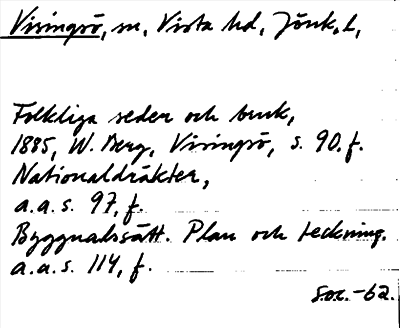 Visingsö, sn, Vista hd, Jönk. l,
Folkliga seder och bruk,
1885, W. Berg, Visingsö, s. 90.f.
Nationaldräkter,
a.a.s. 97, f.
Byggnadssätt. Plan och teckning.
a.a.s. 114, f.
Soc. -62.